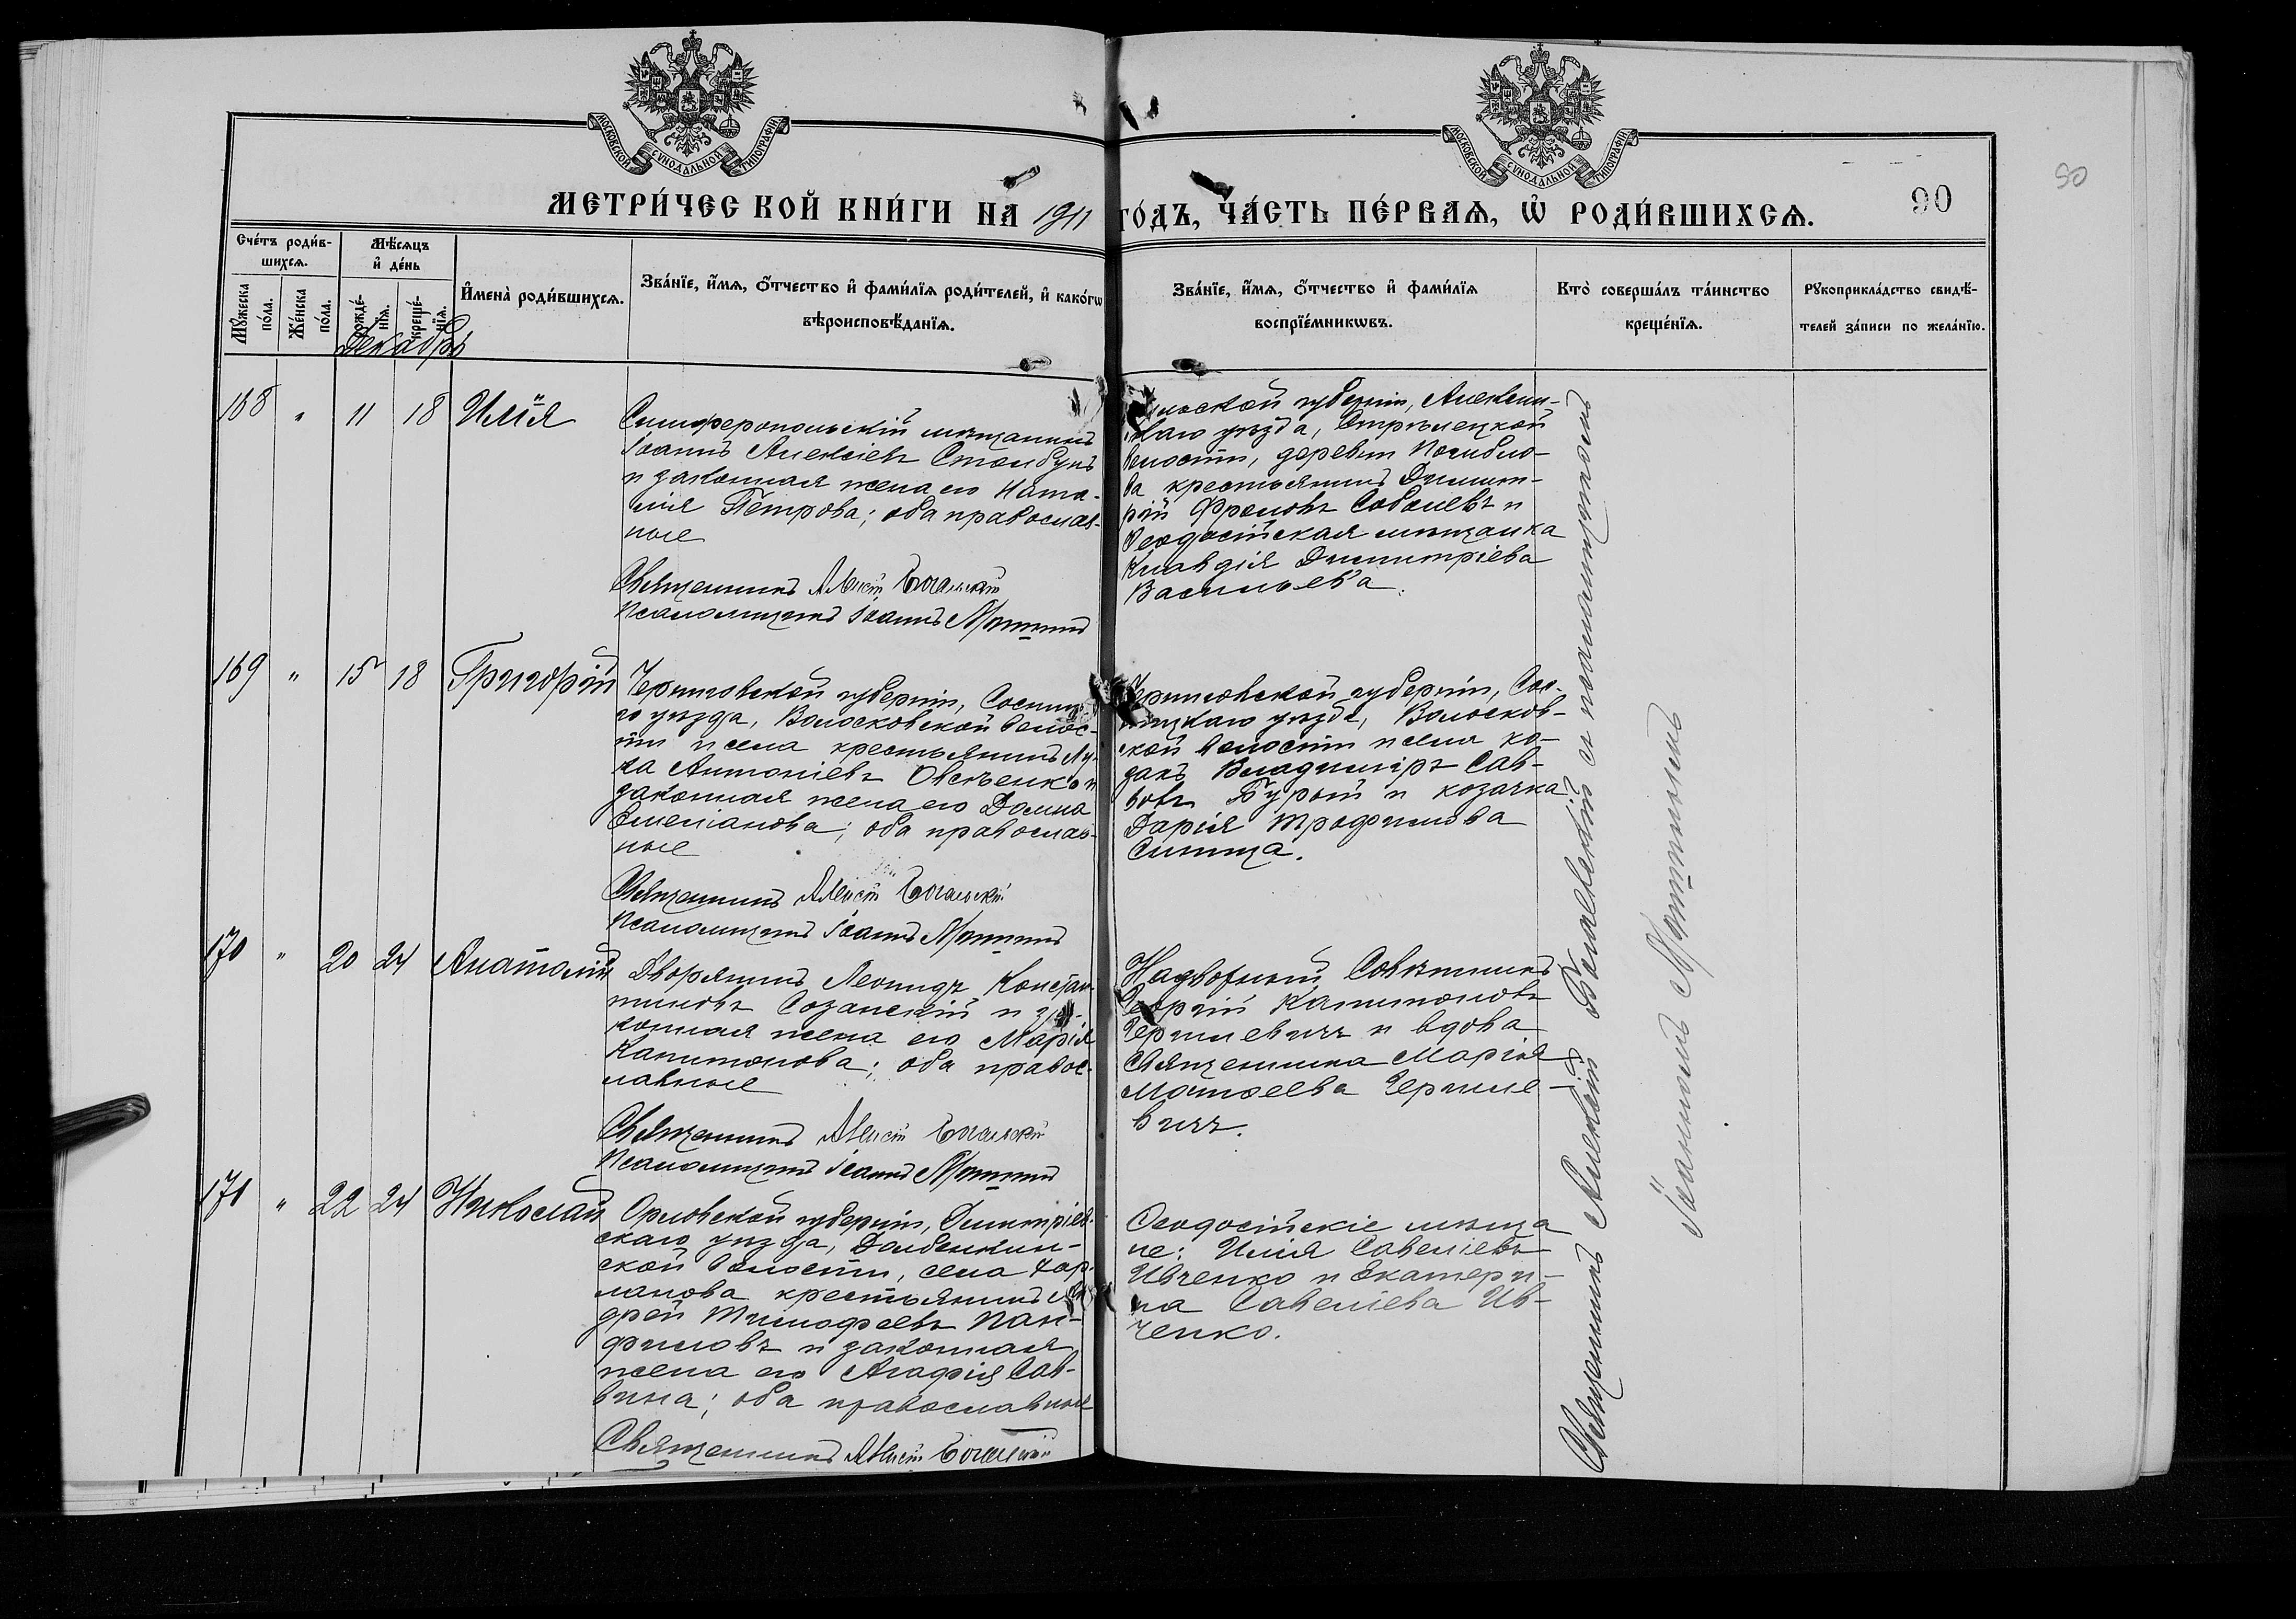 МОСКОВСКОЙ СѴНОДАЛЬНОЙ ТИПОГРАФІИ
МОСКОВСКОЙ СѴНОДАЛЬНОЙ ТИПОГРАФІИ
МЕТРИ́ЧЕСКОЙ КНИ́ГИ НА 1911 ГО́ДЪ, ЧА́СТЬ ПЕ́РВАѦ, Ѡ҆ РОДИ́ВШИХСѦ.
90
90
Сче́тъ роди́в-
шихсѧ.
Мꙋ́жеска
по́ла.
Же́нска
по́ла.
Мѣ́сѧцъ
и҆ де́нь
рожде́-
нїѧ.
креще́-
нїѧ.
И҆мена̀ роди́вшихсѧ.
Зва́нїе, и҆́мѧ, ѻ҆́тчество и҆ фами́лїѧ роди́телей, и҆ како́гѡ
вѣроисповѣ́данїѧ.
Зва́нїе, и҆́мѧ, ѻ҆́тчество и҆ фами́лїѧ
воспрїе́мникѡвъ.
Кто̀ соверша́лъ та́инство
креще́нїѧ.
Рꙋкоприкла́дство свидѣ́-
телей за́писи по жела́нїю.
Декабрь
168 " 11 18 Илія
Симферопольскій мѣщанинъ
Іоаннъ Алексіевъ Стамбулъ
и законная жена его Ната-
лія Петрова; оба православ-
ные
Священникъ Алексій
Псаломщикъ Іоаннъ
Тульской губерніи, Алексин-
скаго уѣзда, Стрѣлецкой
волости, деревни
ва крестьянинъ Димит-
рій Фроловъ Соболевъ и
Ѳеодосійская мѣщанка
Клавдія Димитріева
Васильева.
169 " 15 18 Григорій
Черниговской губерніи, Сосниц-
го уѣзда, Волосковской волос-
ти и села крестьянинъ Лу-
ка Антоніевъ Овсѣенко и
законная жена его Домна
Емеліанова; оба православ-
ные
Священникъ Алексій
Псаломщикъ Іоаннъ
Черниговской губерніи, Сос-
ницкаго уѣзда, Волосков-
ской волости и села ко-
закъ Владиміръ Сав-
вовъ Бурый и козачка
Дарія Трофимова
Синица.
170 " 20 24 Анатолій
Дворянинъ Леонидъ Констан-
тиновъ Созанскій и за-
конная жена его Марія
Капитонова; оба правос-
лавные
Священникъ Алексій
Псаломщикъ Іоаннъ
Надворный Совѣтникъ
Георгій Капитоновъ
и вдова
священника Марія
Матѳеева
171 " 22 24 Николай
Орловской губерніи, Димитріев-
скаго уѣзда, Долбенкин-
ской волости, села Хар-
ланова крестьянинъ Ан-
дрей Тимофеевъ Пан-
филовъ и законная
жена его Агафія Сав-
вина; оба православные
Священникъ Алексій
Ѳеодосійскіе мѣща
не: Илія Савеліевъ
Ивченко и Екатери-
на Савеліева Ив-
ченко.
Священникъ Алексій съ псаломщикомъ
Іоанномъ